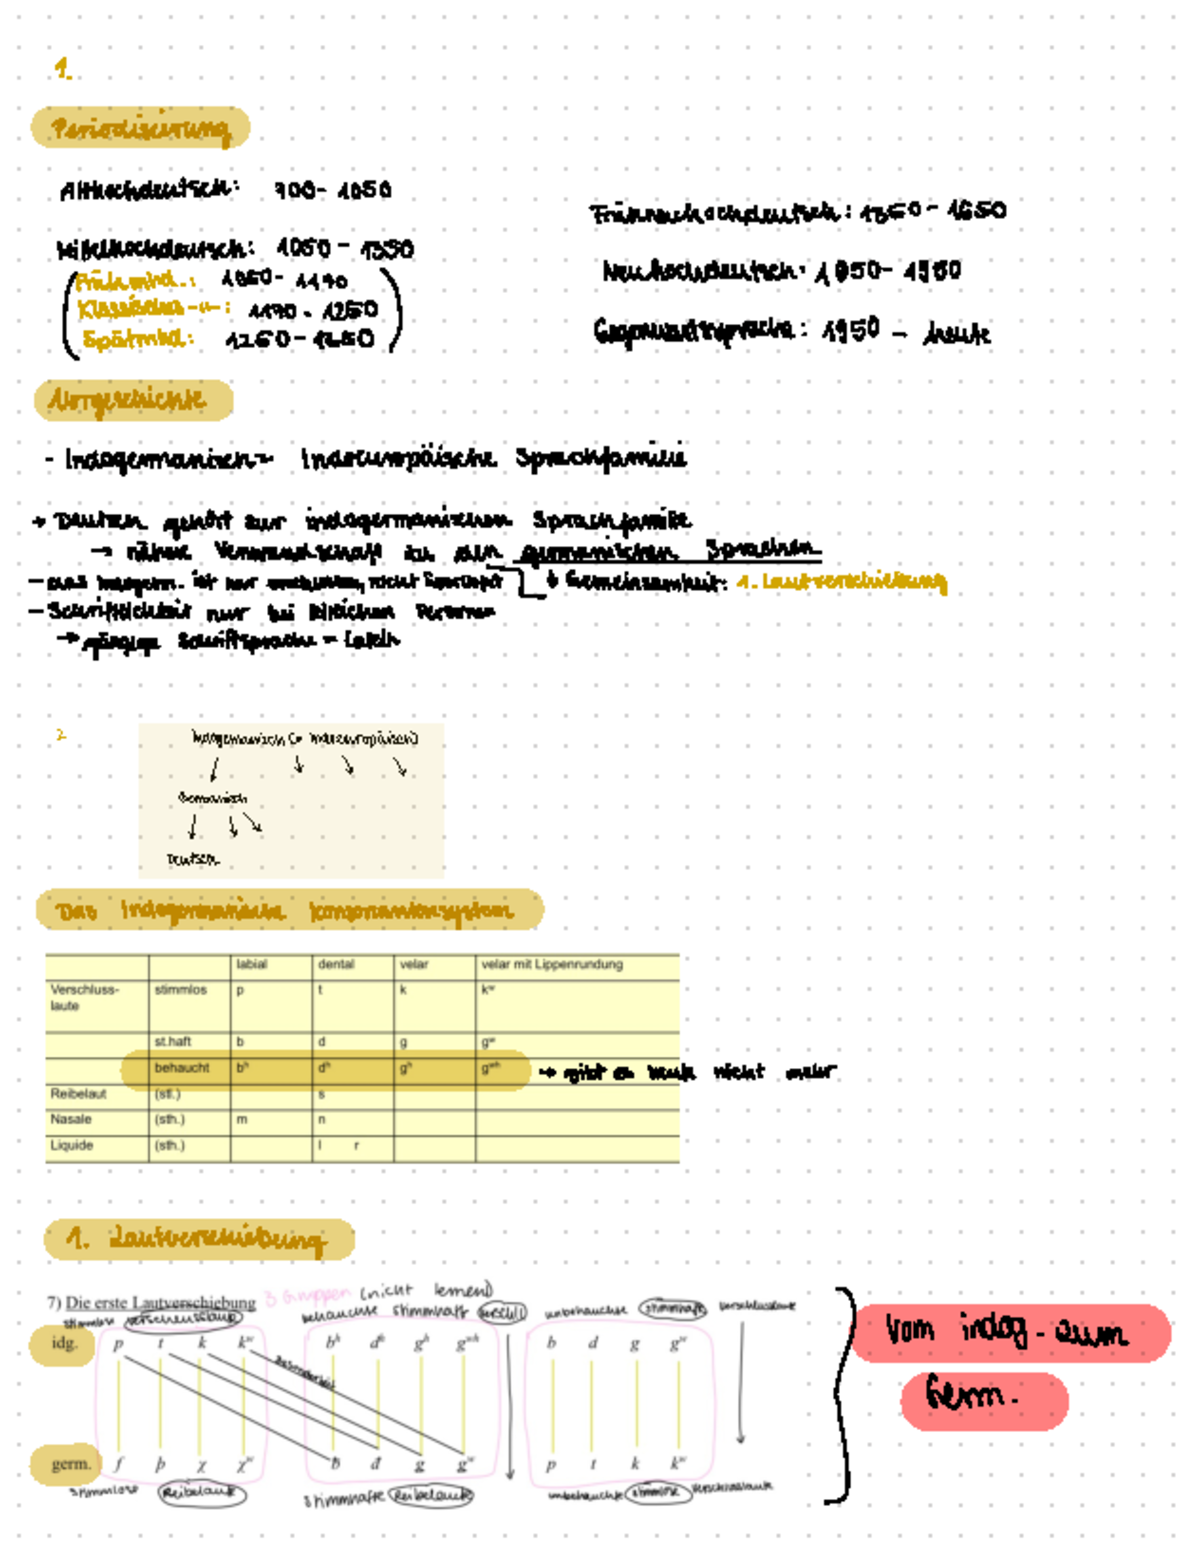 1.
Periodisierung
Althochdeutsch: 700 - 1050
Frühneuhochdeutsch: 1350 - 1650
Mittelhochdeutsch: 1050 - 1350
Neuhochdeutsch: 1650 - 1950
Frühmhd.: 1050 - 1170
Klassisches -"-: 1170 - 1250
Spätmhd.: 1250 - 1350
Gegenwartssprache: 1950 - heute
Vorgeschichte
- Indogermanisch = Indoeuropäische Sprachfamilie
→ Deutsch gehört zur indogermanischen Sprachfamilie
→ nähere Verwandschaft zu den germanischen Sprachen
- das Indogerm. ist nur erschlossen, nicht
↳ Gemeinsamkeit: 1. Lautverschiebung
- Schriftlichkeit nur bei Personen
→ gängige Schriftsprache = Latein
2.
Indogermanisch (= Indoeuropäisch)
Germanisch
Deutsch
Das Indogermanische Konsonantensystem
labial dental velar velar mit Lippenrundung
Verschluss-laute stimmlos p t k kʷ
st.haft b d g gʷ
behaucht bʰ dʰ gʰ gʷʰ → gibt es heute nicht mehr
Reibelaut (stl.) s
Nasale (sth.) m n
Liquide (sth.) l r
1. Lautverschiebung
7) Die erste Lautverschiebung 3 Gruppen (nicht lernen)
stimmlose Verschlusslaute behauchte stimmhaft Verschl. unbehauchte stimmhafte Verschlusslaute
idg. p t k kʷ bʰ dʰ gʰ gʷʰ b d g gʷ
Besonderheit
Vom indog. zum
Germ.
germ. f þ χ χʷ b d g gʷ p t k kʷ
stimmlose Reibelaute stimmhafte Reibelaute unbehauchte stimmlose Verschlusslaute